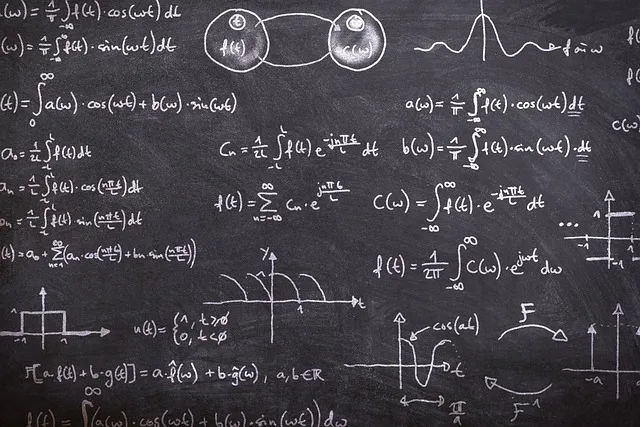 (ω) = 1/π ∫_{-∞} f(t)·cos(ωt)dt
(ω) = 1/π ∫_{-∞}^{∞} f(t)·sin(ωt)dt
t
f(t)
t
C(ω)
f sin ω
(t) = ∫_0^∞ a(ω)·cos(ωt)+b(ω)·sin(ωt)
a(ω) = 1/π ∫_{-∞}^{∞} f(t)·cos(ωt)dt
C(ω)
a₀ = 1/2L ∫_{-L}^{L} f(t)dt
Cn = 1/2L ∫_{-L}^{L} f(t)e^{-jnπt/L} dt
b(ω) = 1/π ∫_{-∞}^{∞} f(t)·sin(ωt)·dt
an = 1/L ∫_{-L}^{L} f(t)·cos(nπt/L)dt
f(t) = ∑_{n=-∞}^{∞} Cn·e^{jnπt/L}
C(ω) = ∫_{-∞}^{∞} f(t)·e^{-jnπt/L} dt
bn = 1/L ∫_{-L}^{L} f(t)·sin(nπt/L)dt
...
1
-1
1
(t) = a₀ + ∑_{n=1}^{∞} (an·cos(nπt/L) + bn·sin(nπt/L))
f(t) = 1/2π ∫_{-∞}^{∞} C(ω)·e^{jωt} dω
y
1
1
t
-1
1
u(t) = {1, t≥0
0, t<0
cos(at)
t
π/a
F
F^{-1}
-a
F[a·f(t)+b·g(t)] = a·f̂(ω) + b·ĝ(ω), a,b∈ℝ
f(t) = ∫^∞ (a(ω)·cos(ωt) + b(ω)·sin(ωt))dω